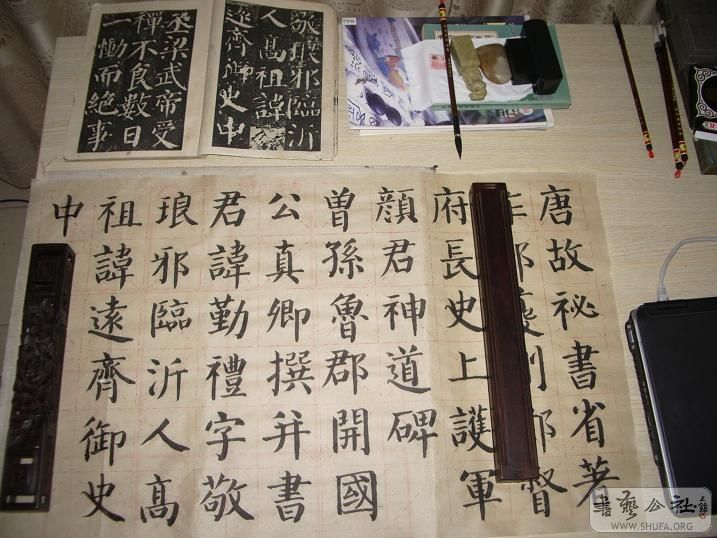 敬琅邪臨沂
人高祖諱
遠齊御史中
丞梁武帝受
禪不食數日
一慟而絕事
唐故祕書省著
督
府長史上護軍
顏君神道碑
曾孫魯郡開國
公真卿撰并書
君諱勤禮字敬
琅邪臨沂人高
祖諱遠齊御史
中
書藝公社
WWW.SHUFA.ORG